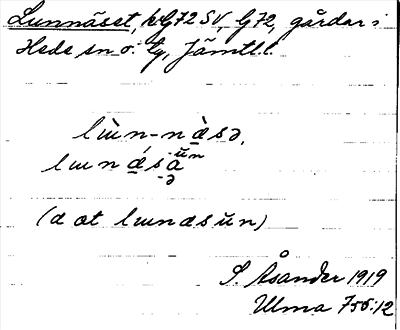 Lunnäset, kG72SV, G72, gårdar i
Hede sn o. tg, Jämtl.l.
lɯ̀n-næ̀sə,
lɯnǽsä ŭn
-ə
(a æt lɯnæsŭn)
S. Åsander 1919
Ulma 756:12